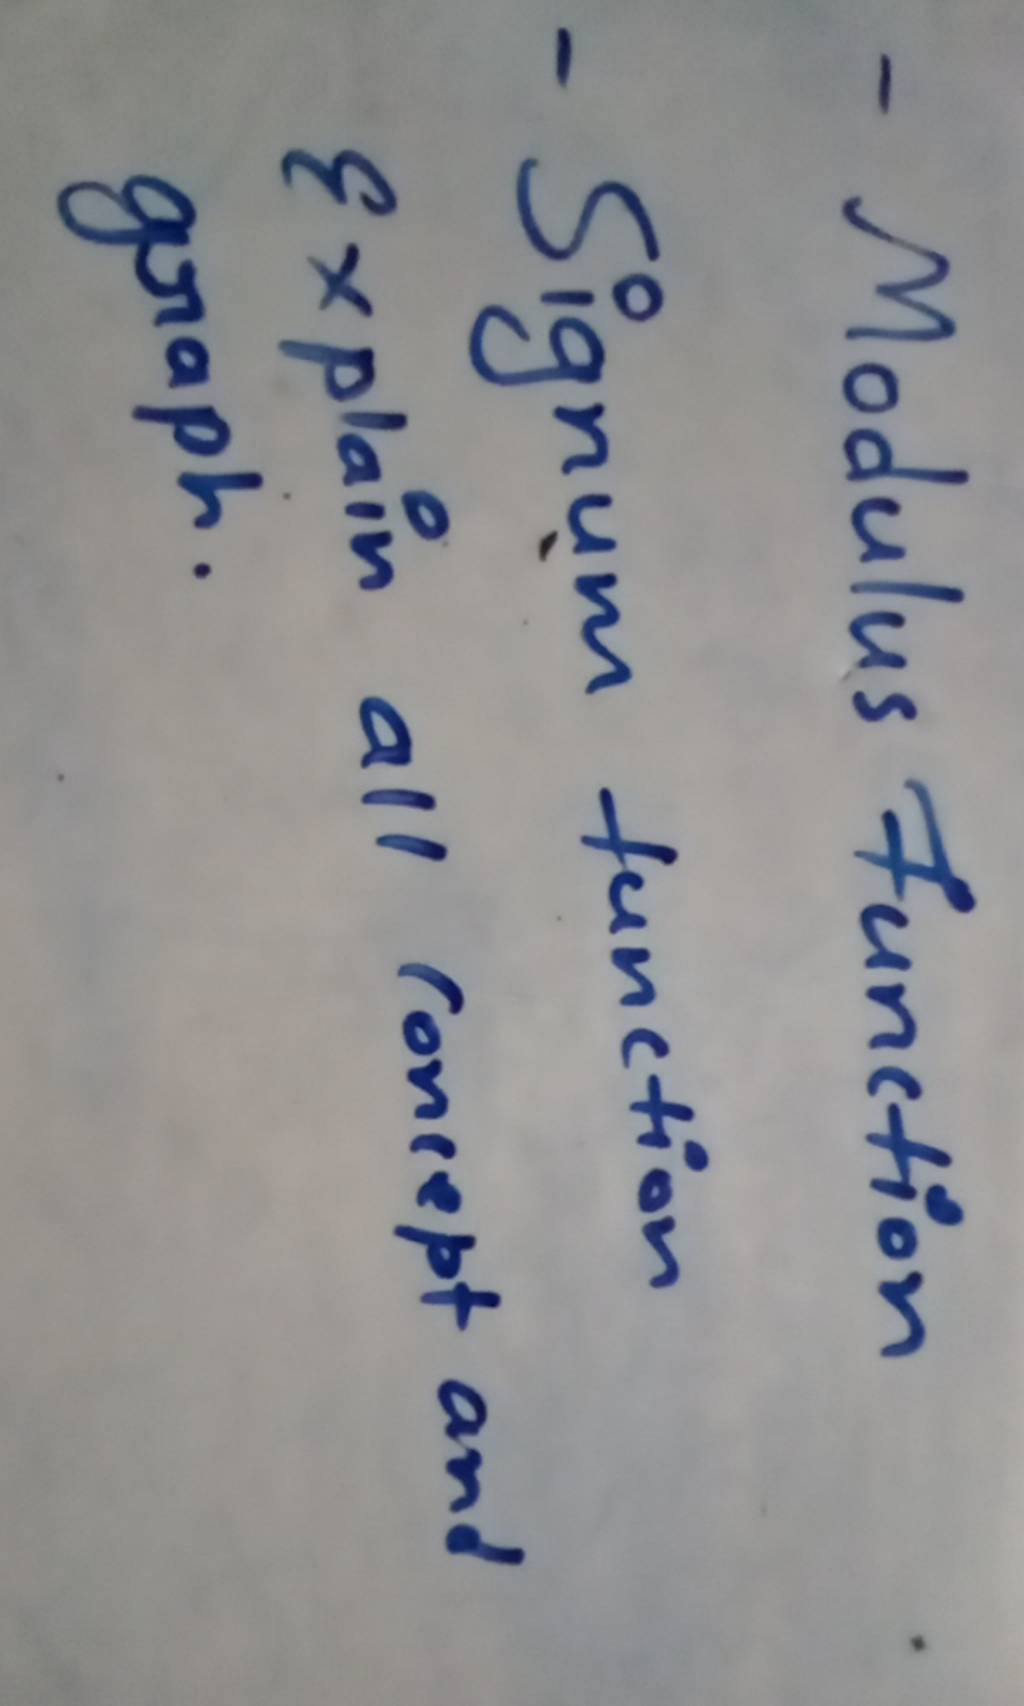 - Modulus Function
- Signum function
Explain all concept and
graph.